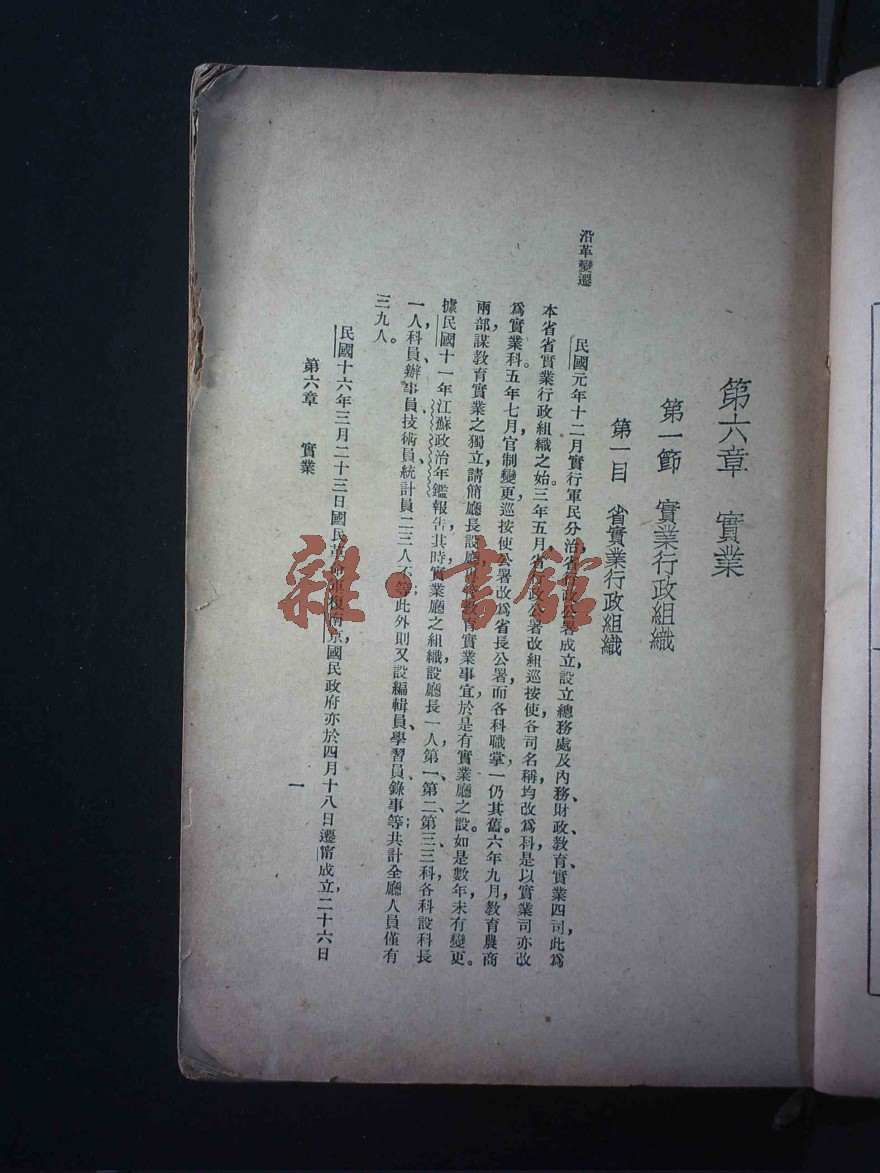 第六章　實業
第一節　實業行政組織
第一目　省實業行政組織
沿革變遷
民國元年十二月實行軍民分治省行政公署成立，設立總務處及內務、財政、教育、實業四司，此爲
本省省實業行政組織之始。三年五月，省行政公署改組巡按使，各司名稱，均改爲科，是以實業司亦改
爲實業科。五年七月，官制變更，巡按使公署改爲省長公署，而各科職掌，一仍其舊。六年九月，教育農商
兩部，謀教育實業之獨立，請簡廳長，設廳教育實業事宜，於是有實業廳之設。如是數年，未有變更。
據民國十一年江蘇政治年鑑報告，其時實業廳之組織，設廳長一人，第一、第二、第三三科，各科設科長
一人，科員、辦事員、技術員、統計員二三人不等；此外則又設編輯員、學習員、錄事等；共計全廳人員僅有
三九人。
民國十六年三月二十三日國民革命軍復南京，國民政府亦於四月十八日遷甯成立，二十六日
第六章　實業
一
雜·書館